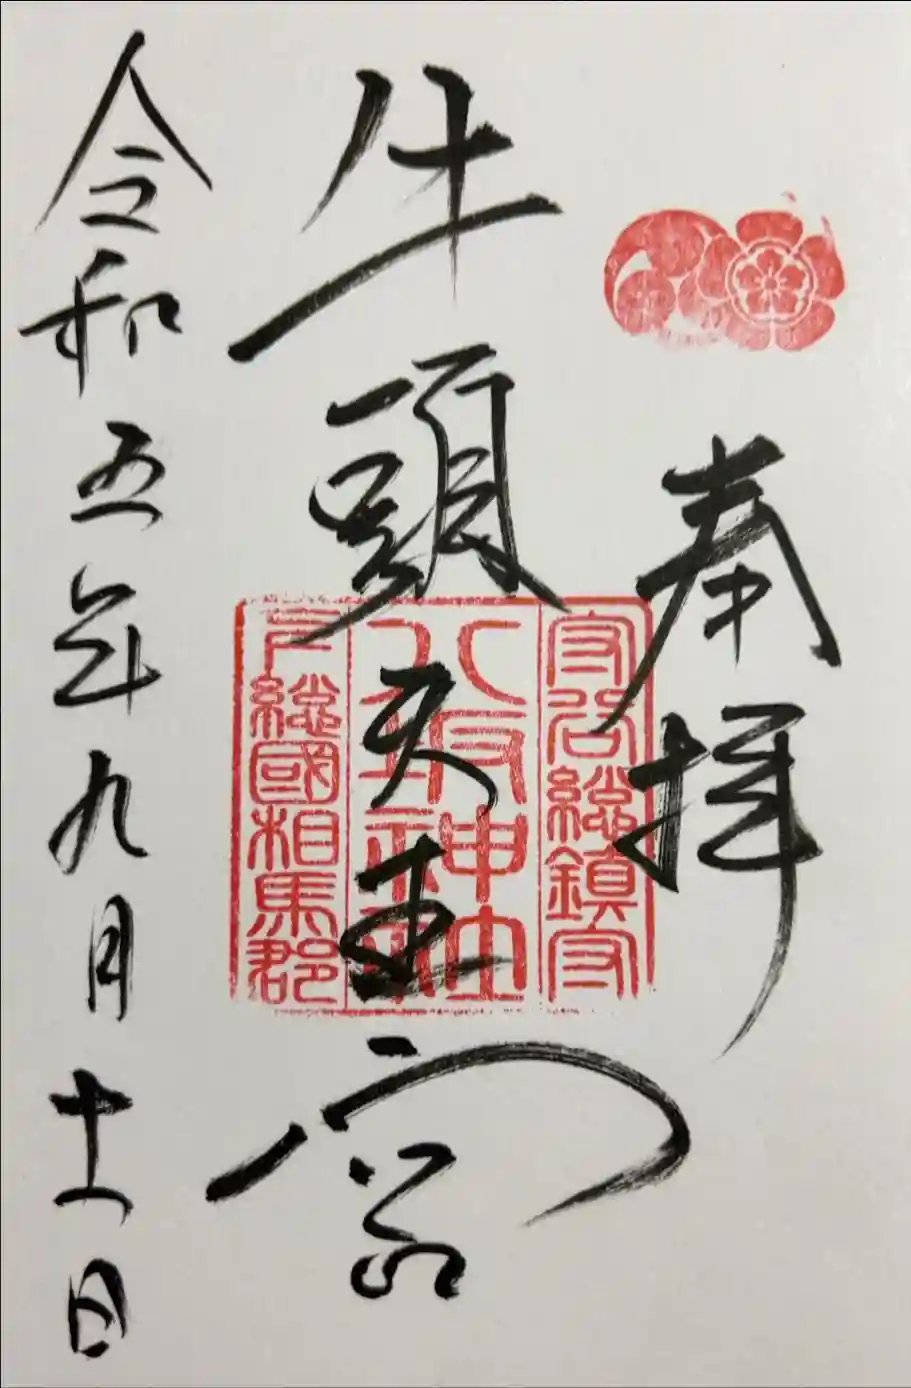 奉拝
守谷総鎮守
牛頭天王宮
八坂神社
下総國相馬郡
令和五年九月十一日